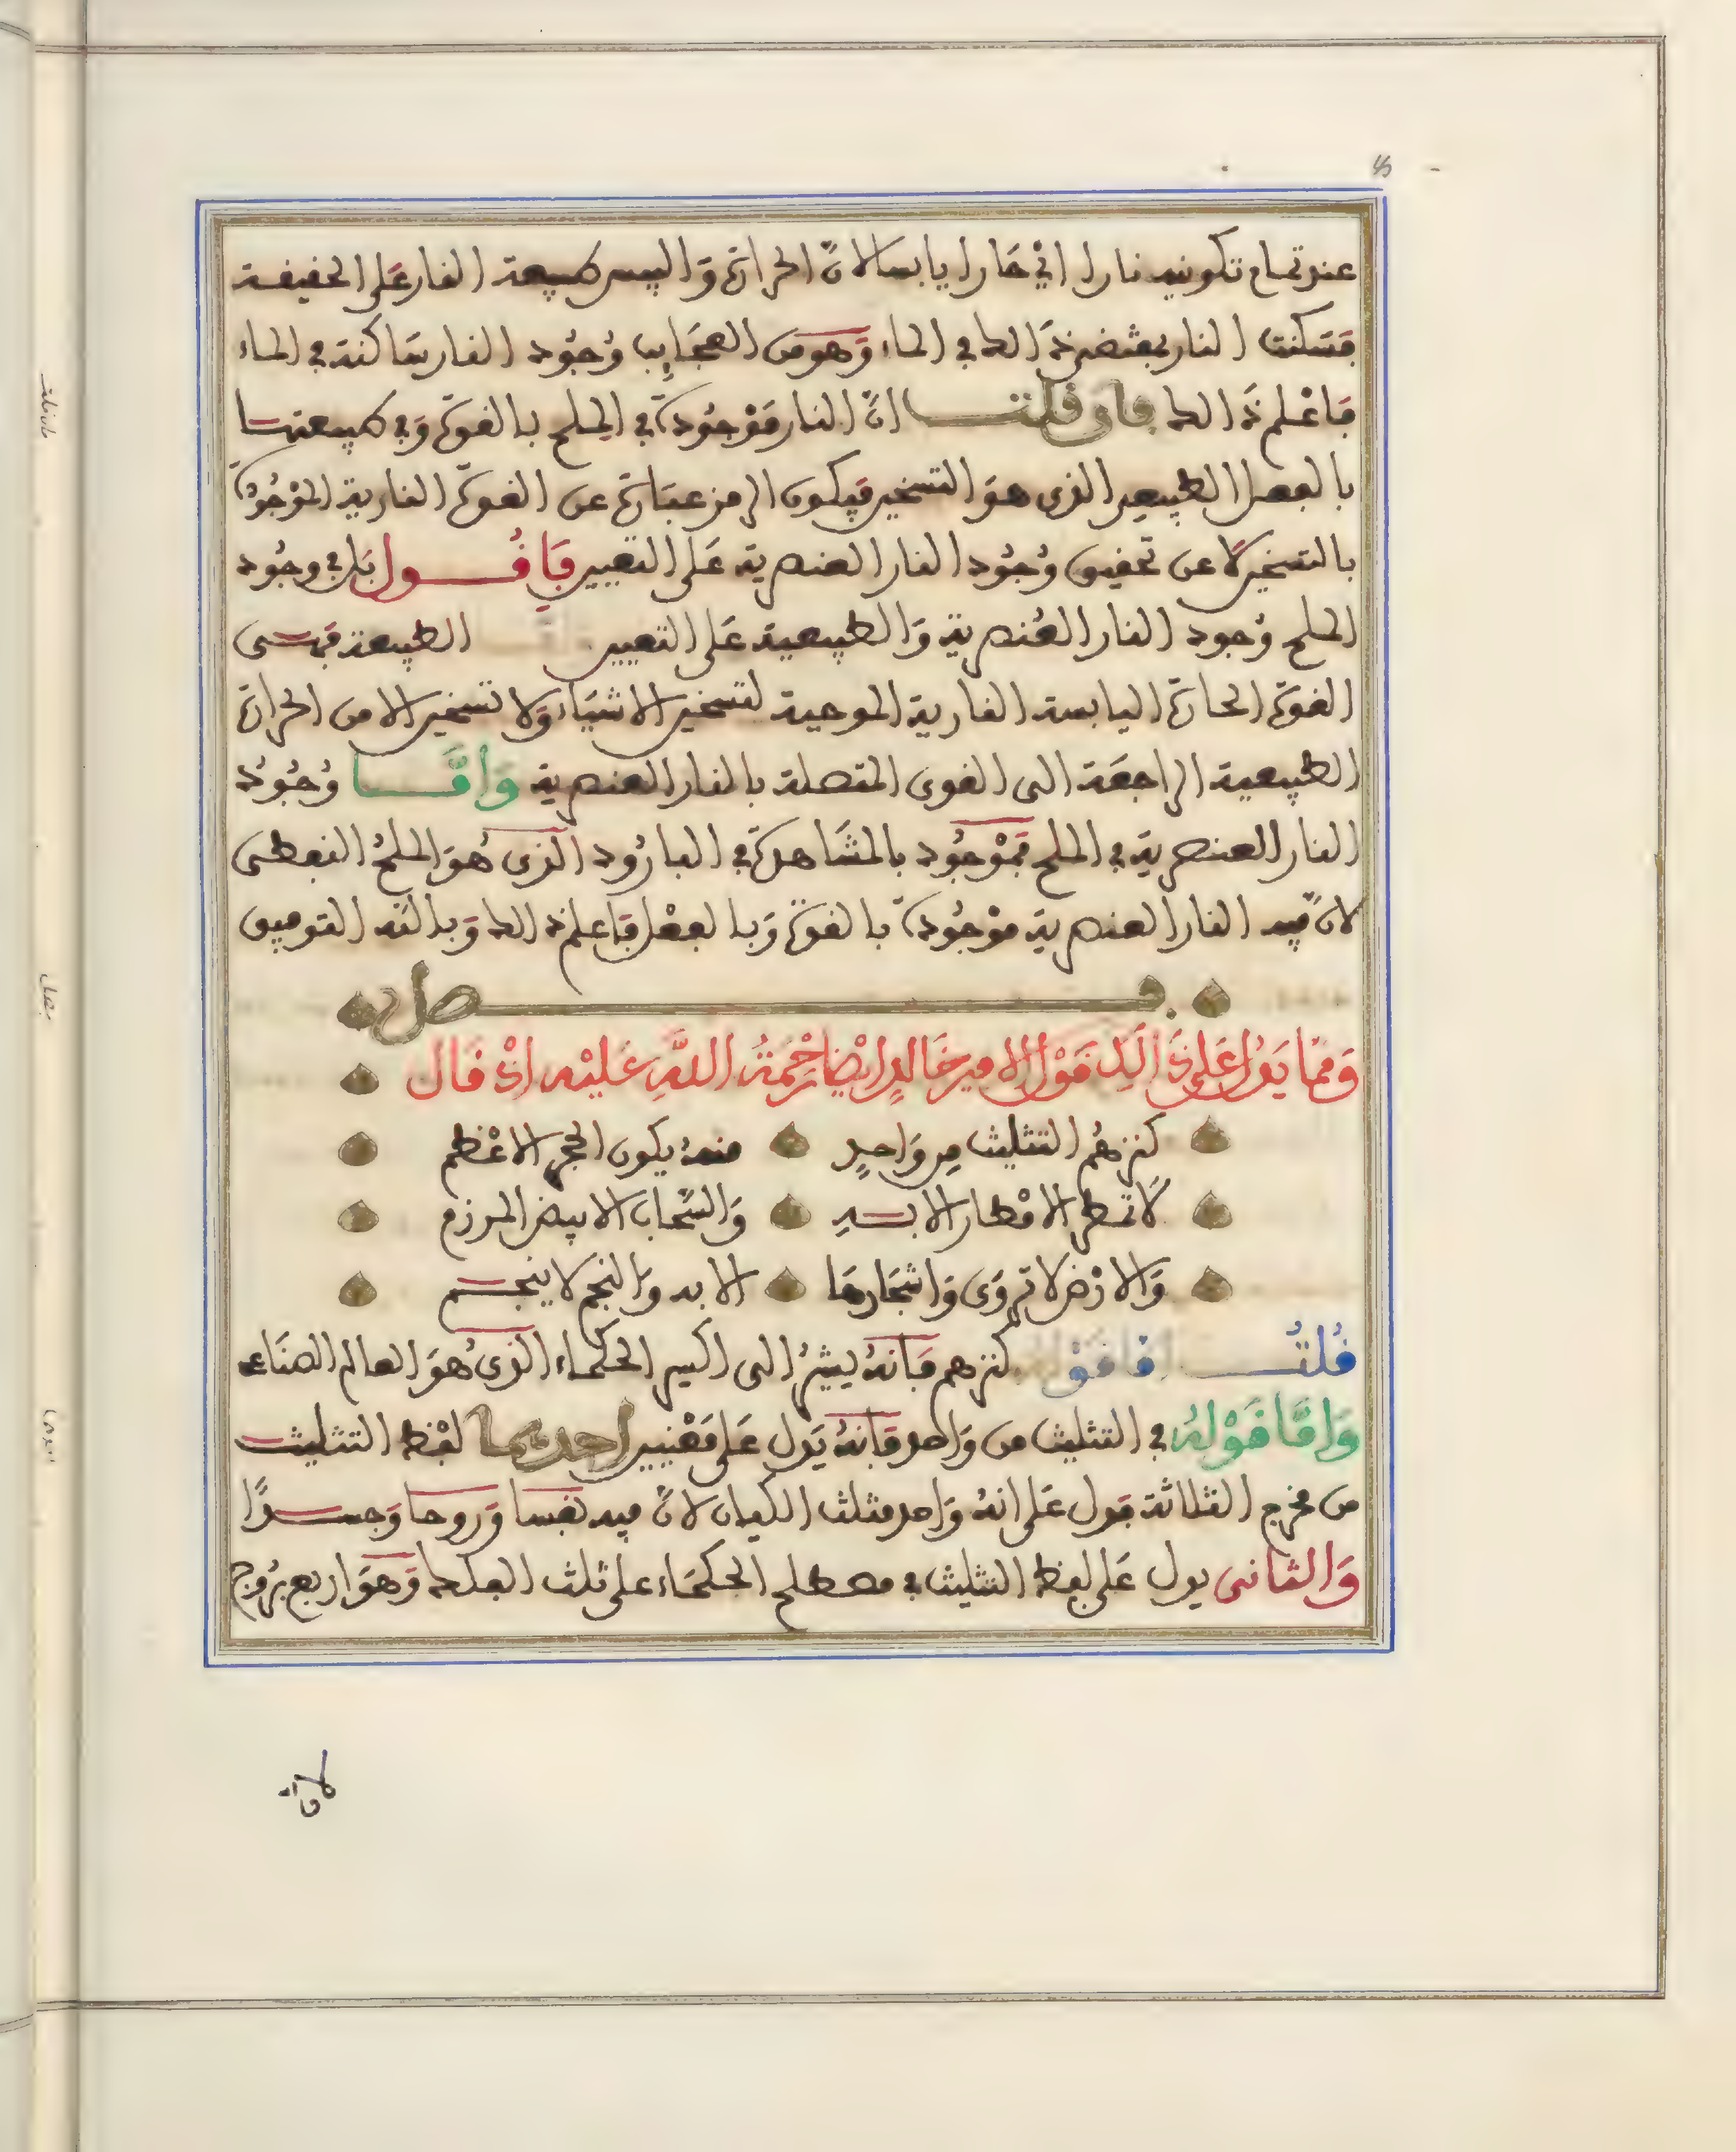 عند تمام تكوينه نارا اي حارا يابسا لانّ الحرارة واليبس طبيعة النار على الحقيقة
فسكنت النار بمقتضى ذلك في الماء وهو من العجايب وجود النار ساكنة في الماء
فاعلم ذلك فان قلت انّ النار موجودة في الملح بالقوة وفي طبيعتها
بالفعل الطبيعي الذي هو التسخين فيكون الرمز عبارة عن القوة النارية الموجودة
بالتسخين لا عن تحقيق وجود النار العنصرية على التعيين فاقول بل في وجود
الملح وجود النار العنصرية والطبيعية على التعيين الطبيعة فهي
القوة الحارة اليابسة النارية الموجبة لتسخين الاشياء ولا تسخين الا من الحرارة
الطبيعية الراجعة الى القوى المتصلة بالنار العنصرية وامّا وجود
النار العنصرية في الملح فموجود بالمشاهدة في البارود الذي هو الملح النفطي
لانّ فيه النار العنصرية موجودة بالقوة وبالفعل فاعلم ذلك وبالله التوفيق
فصل
وممّا يدل على ذالك قول الامير خالد ايضا رحمة الله عليه اذ قال
كنزهم التثليث من واحد منه يكون الحجر الاعظم
لا تمطر الامطار الا به والسحاب الابيض المرزم
والارض لا تروى واشجارها الا به والنجم لا ينجم
قلت اما قوله كنزهم فانه يشير الى اكسير الحكماء الذي هو العالم الصناعي
وامّا قوله في التثليث من واحد فانه يدل على معنيين احدهما لفظ التثليث
من مخرج الثلاثة فدل على انه واحد مثلث الكيان لانّ فيه نفسا وروحا وجسدًا
والثاني يدل على لفظ التثليث في مصطلح الحكماء على ثلث الفلك وهو اربع بروج
لانّ